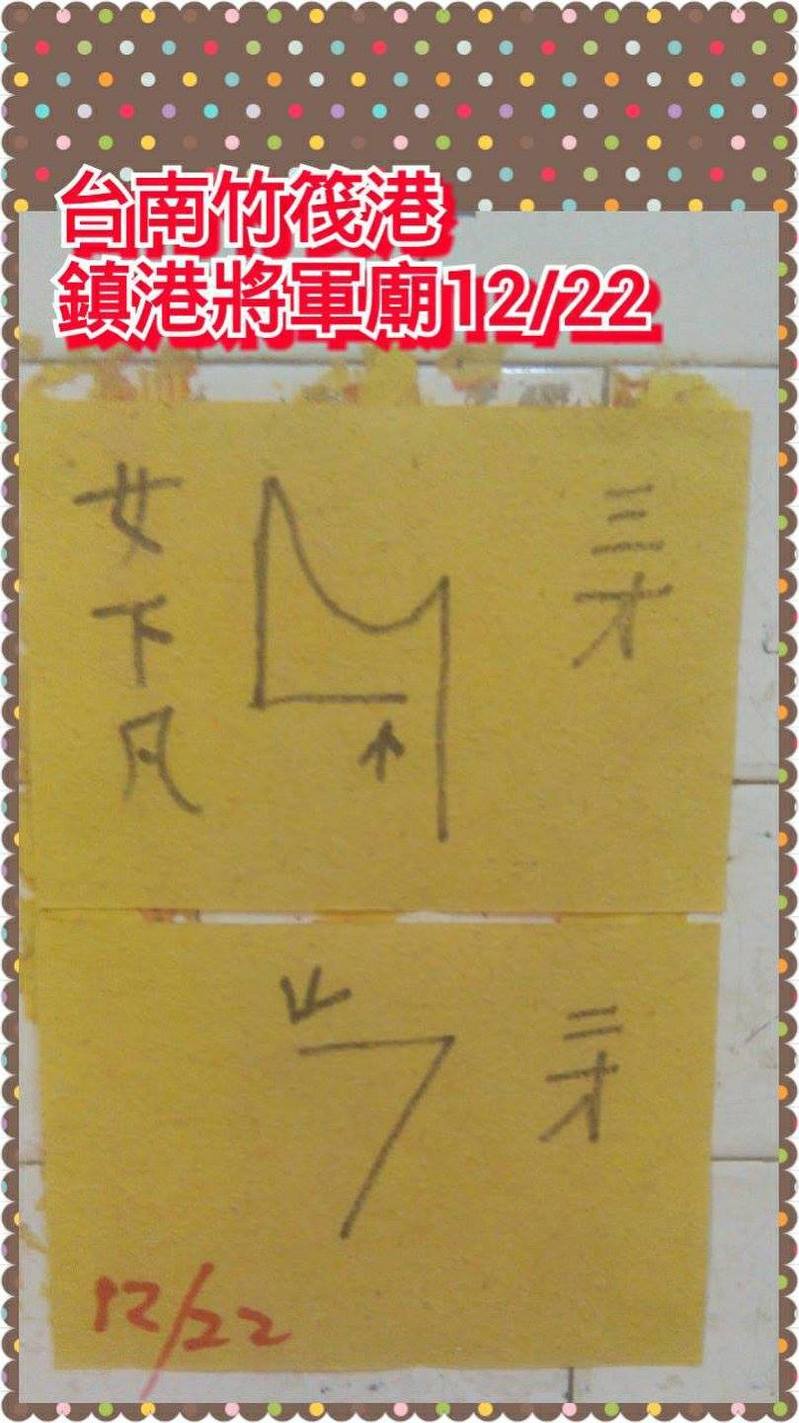 台南竹筏港
鎮港將軍廟12/22
三才
女下凡
三才
12/22